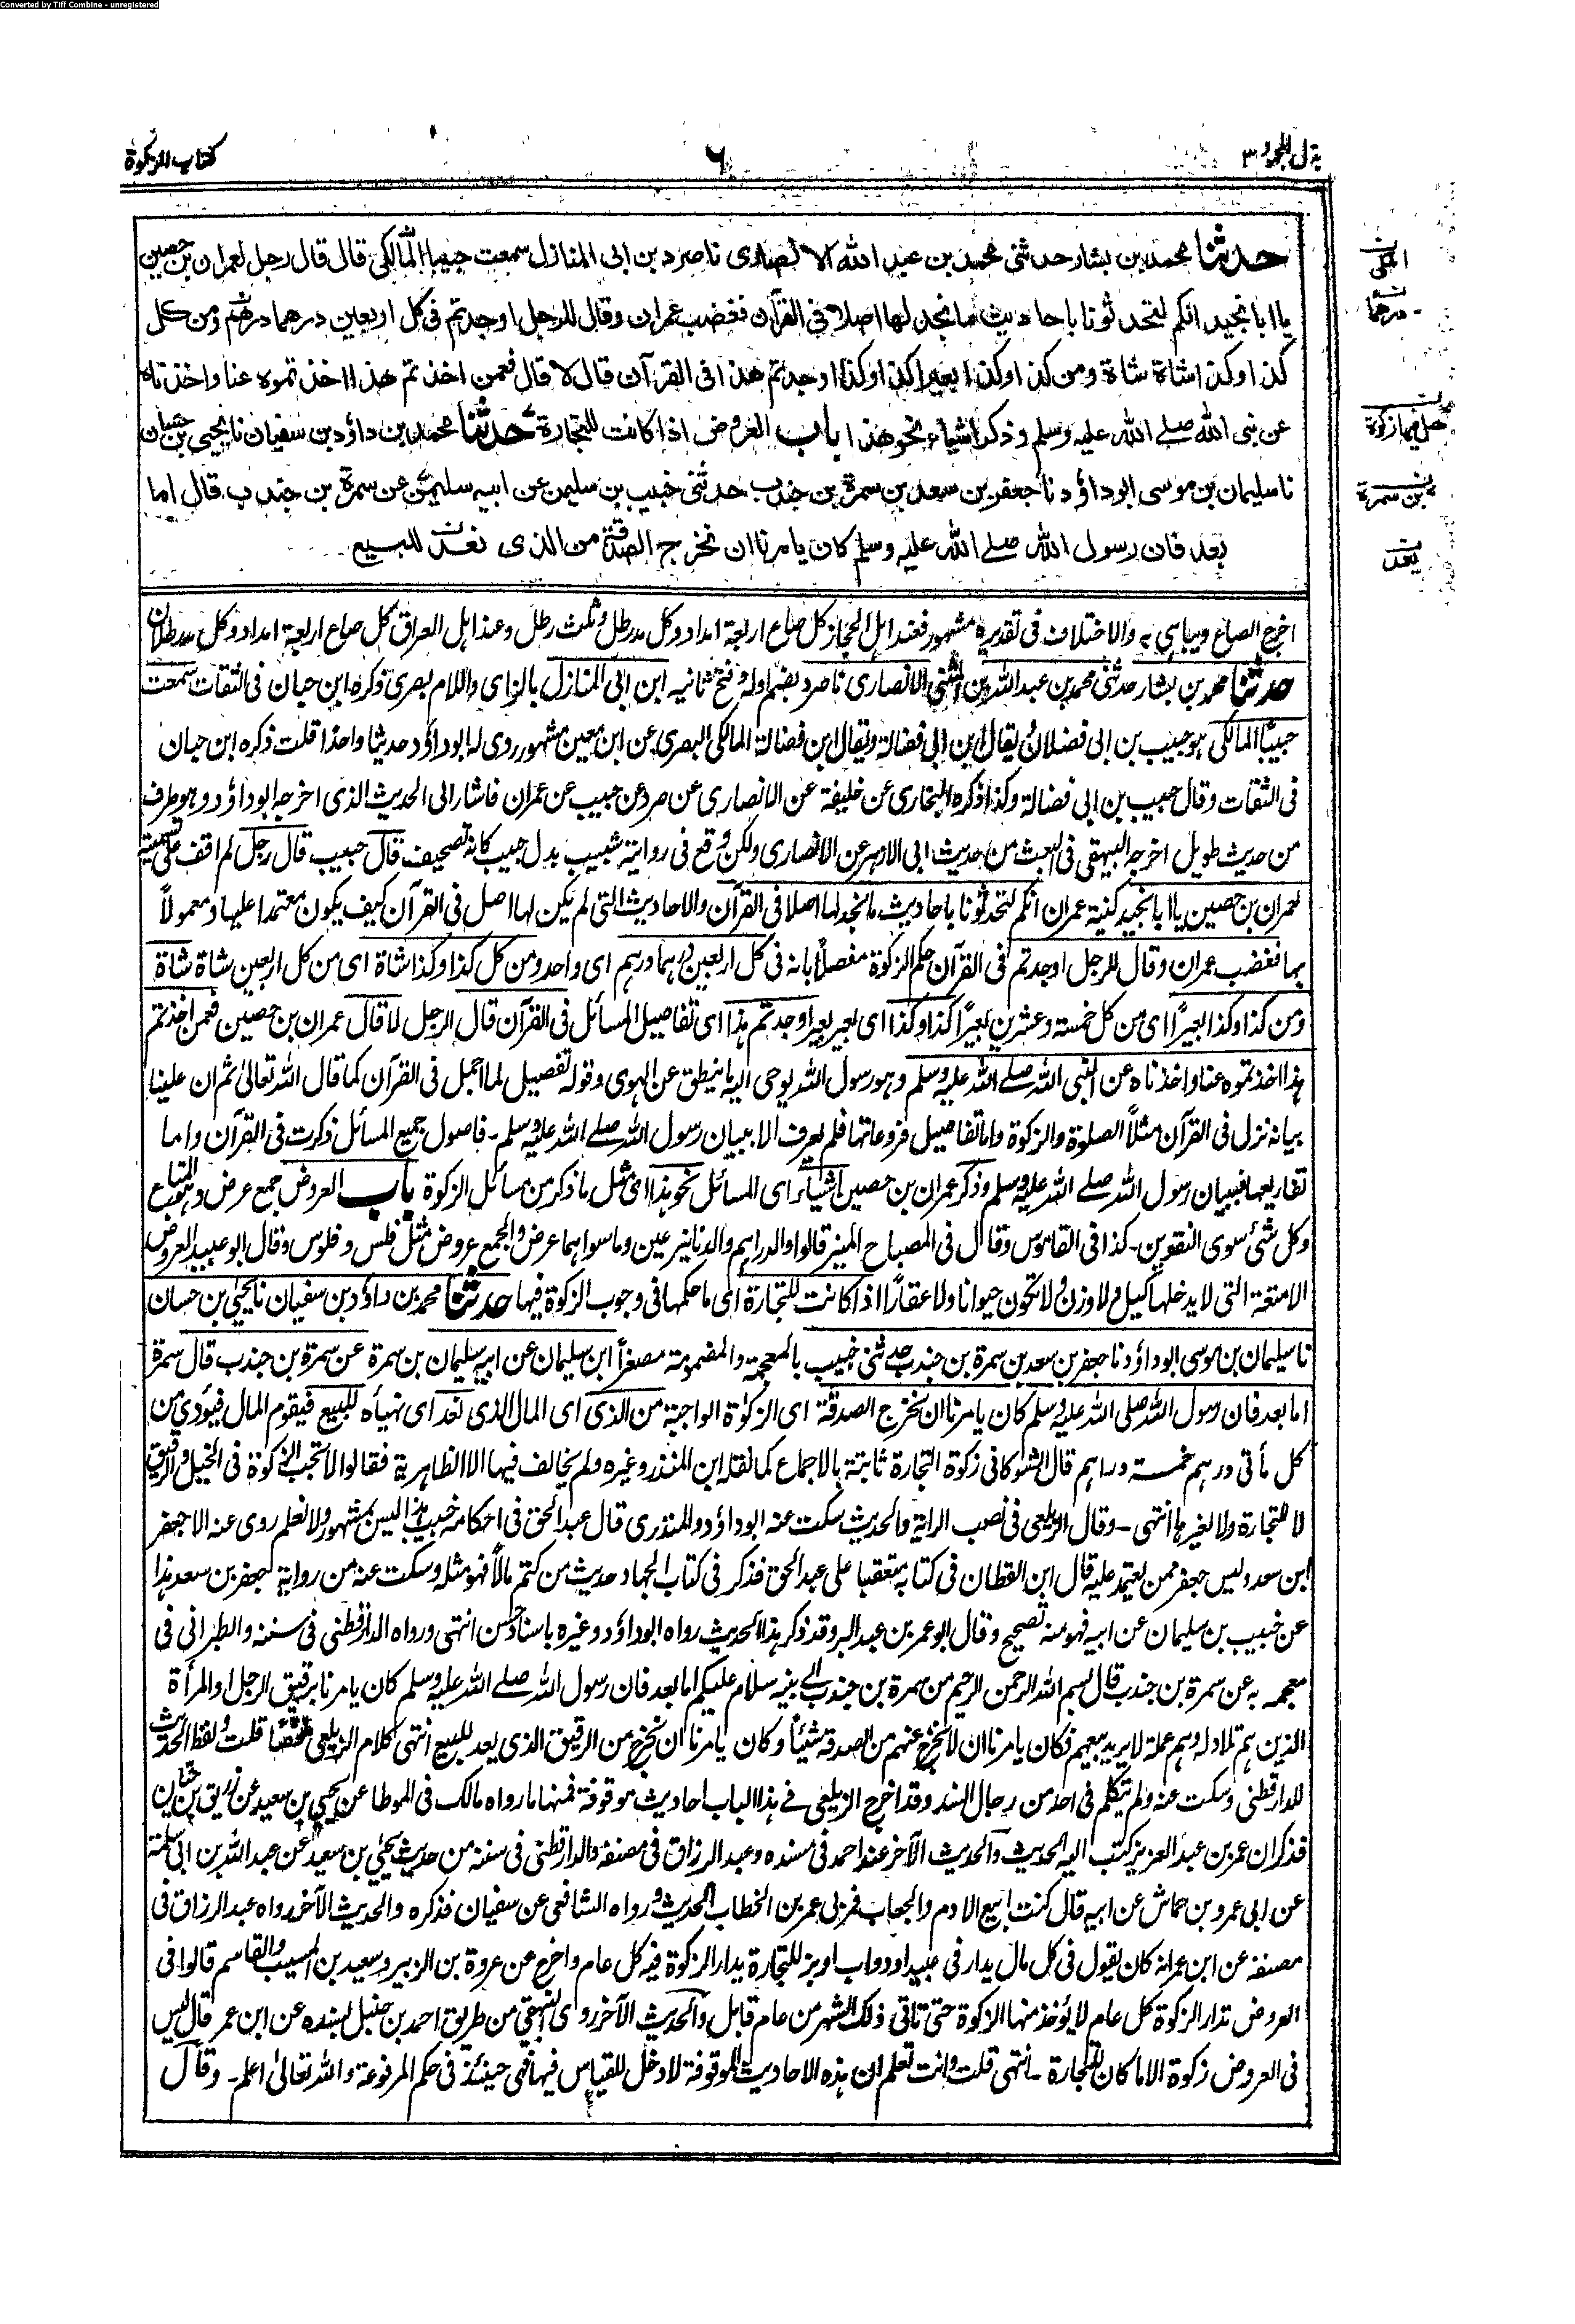 Converted by Tiff Combine - unregistered
بذل المجهود ٣
٦
كتاب الزكوة
حدثنا محمد بن بشار حدثنى محمد بن عبد الله الانصارى ناصرد بن ابى المنازل سمعت حبيبا المالكى قال قال رجل لعمران بن حصين
يا ابا نجيد انكم لتحدثونا باحاديث ما نجد لها اصلا فى القرآن فغضب عمران وقال للرجل اوجدتم فى كل اربعين درهما درهم ومن كل
كذا وكذا شاة شاة ومن كذا وكذا بعيرا كذا وكذا اوجدتم هذا فى القرآن قال لا قال فعمن اخذتم هذا اخذتموه عنا واخذناه
عن نبى الله صلے الله عليه وسلم وذكر اشياء نحو هذا باب العروض اذا كانت للتجارة حدثنا محمد بن داؤد بن سفيان نا يحيى بن حسان
نا سليمان بن موسى ابو داؤد نا جعفر بن سعد بن سمرة بن جندب حدثنى خبيب بن سليمن عن ابيه سليمن عن سمرة بن جندب قال اما
بعد فان رسول الله صلے الله عليه وسلم كان يامرنا ان نخرج الصدقة من الذى نعد للبيع
المكى
درهما
هل فيها زكوة
بن سمرة
يعد
اخرج الصاع ويباهى به والاختلاف فى تقديره مشهور فعند اهل الحجاز كل صاع اربعة امداد وكل مد رطل وثلث رطل وعند اهل العراق كل صاع اربعة امداد وكل مد رطلان
حدثنا محمد بن بشار حدثنى محمد بن عبد الله بن المثنى الانصارى ناصرد بضم اوله وفتح ثانيه ابن ابى المنازل بالزاى واللام بصرى ذكره ابن حبان فى الثقات سمعت
حبيبًا المالكى هو حبيب بن ابى فضلان يقال ابن ابى فضالة ويقال ابن فضالة المالكى البصرى عن ابن معين مشهور روى له ابو داؤد حديثا واحدًا قلت ذكره ابن حبان
فى الثقات وقال حبيب بن ابى فضالة وكذا ذكره البخارى عن خليفة عن الانصارى عن صرد عن حبيب عن عمران فاشار الى الحديث الذى اخرجه ابو داؤد وهو طرف
من حديث طويل اخرجه البيهقى فى البعث من حديث ابى الازهر عن الانصارى ولكن وقع فى روايته شبيب بدل حبيب كانه تصحيف قال حبيب قال رجل لم اقف على تسميته
لعمران بن حصين يا ابا نجيد كنية عمران انكم لتحدثونا باحاديث ما نجد لها اصلا فى القرآن والاحاديث التى لم يكن لها اصل فى القرآن كيف يكون معتمدا عليها ومعمولًا
بها فغضب عمران وقال للرجل اوجدتم فى القرآن حكم الزكوة مفصلًا بانه فى كل اربعين درهما درهم اى واحد ومن كل كذا وكذا شاة اى من كل اربعين شاة شاة
ومن كذا وكذا بعيرًا اى من كل خمسة وعشرين بعيرًا كذا وكذا اى بعير بعيرا وجدتم هذا اى تفاصيل المسائل فى القرآن قال الرجل لا قال عمران بن حصين فعمن اخذتم
هذا اخذتموه عنا واخذناه عن النبى الله صلے الله عليه وسلم وهو رسول الله يوحى اليه ما ينطق عن الهوى وقوله تفصيل لما اجمل فى القرآن كما قال الله تعالى ثم ان علينا
بيانه نزل فى القرآن مثلًا الصلوة والزكوة واما تفاصيل فروعاتها فلم يعرف الا ببيان رسول الله صلے الله عليه وسلم - فاصول جميع المسائل ذكرت فى القرآن واما
تفاريعها فببيان رسول الله صلے الله عليه وسلم وذكر عمران بن حصين اشياء اى المسائل نحو هذا اى مثل ما ذكر من مسائل الزكوة باب العروض جمع عرض وهو المتاع
وكل شئ سوى النقدين - كذا فى القاموس وقال فى المصباح المنير قالوا والدراهم والدنانير عين وما سواهما عرض والجمع عروض مثل فلس وفلوس وقال ابو عبيد العروض
الامتعة التى لا يدخلها كيل ولا وزن ولا تكون حيوانا ولا عقارًا اذا كانت للتجارة اى ما حكمها فى وجوب الزكوة فيها حدثنا محمد بن داؤد بن سفيان نا يحيى بن حسان
نا سليمان بن موسى ابو داؤد نا جعفر بن سعد بن سمرة بن جندب حدثنى خبيب بالمعجمة والمضمومة مصغراً ابن سليمان عن ابيه سليمان بن سمرة عن سمرة بن جندب قال سمرة
اما بعد فان رسول الله صلى الله عليه وسلم كان يامرنا ان نخرج الصدقة اى الزكوة الواجبة من الذى اى المال الذى نعد اى نهيأه للبيع فيقوم المال فيؤدى من
كل مأتى درهم خمسة دراهم قال الشوكانى زكوة التجارة ثابتة بالاجماع كما نقله ابن المنذر وغيره ولم يخالف فيها الا الظاهرية فقالوا لا تجب الزكوة فى الخيل والرقيق
لا للتجارة ولا لغيرها انتهى - وقال الزيلعى فى نصب الراية والحديث سكت عنه ابو داؤد والمنذرى قال عبد الحق فى احكامه خبيب هذا ليس بمشهور ولا نعلم روى عنه الا جعفر
ابن سعد وليس جعفر ممن يعتمد عليه قال ابن القطان فى كتابه متعقبا على عبد الحق فذكر فى كتاب الجهاد حديث من كتم غالا فهو مثله وسكت عنه من رواية جعفر بن سعد هذا
عن خبيب بن سليمان عن ابيه فهو منه تصحيح وقال ابو عمر بن عبد البر وقد ذكر هذا الحديث رواه ابو داؤد وغيره باسناد حسن انتهى ورواه الدارقطنى فى سننه والطبرانى فى
معجمه به عن سمرة بن جندب قال بسم الله الرحمن الرحيم من سمرة بن جندب الى بنيه سلام عليكم اما بعد فان رسول الله صلے الله عليه وسلم كان يامرنا برقيق الرجل او المرأة
الذين هم تلادله وهم عملة لا يريد بيعهم فكان يامرنا ان لا نخرج عنهم من الصدقة شيئًا وكان يامرنا ان نخرج من الرقيق الذى يعد للبيع انتهى كلام الزيلعى ملخصًا قلت ولفظ الحديث
للدارقطنى وسكت عنه ولم يتكلم فى احد من رجال السند وقد اخرج الزيلعى فى هذا الباب احاديث موقوفة فمنها ما رواه مالك فى الموطا عن يحيى بن سعيد عن زريق بن حيان
فذكر ان عمر بن عبد العزيز كتب اليه الحديث والحديث الآخر عند احمد فى مسنده وعبد الرزاق فى مصنفه والدارقطنى فى سننه من حديث يحيى بن سعيد عن عبد الله بن ابى سلمة
عن ابى عمرو بن حماش عن ابيه قال كنت ابيع الادم والجعاب فمر بى عمر بن الخطاب الحديث ورواه الشافعى عن سفيان فذكره والحديث الآخر رواه عبد الرزاق فى
مصنفه عن ابن عمر انه كان يقول فى كل مال يدار فى عبيد او دواب او بز للتجارة يدار الزكوة فيه كل عام واخرج عن عروة بن الزبير وسعيد بن المسيب والقاسم قالوا فى
العروض تدار الزكوة كل عام لا يؤخذ منها الزكوة حتى تاتى ذلك الشهر من عام قابل والحديث الآخر روى البيهقى من طريق احمد بن حنبل بسنده عن ابن عمر قال ليس
فى العروض زكوة الا ما كان للتجارة - انتهى قلت وانت تعلم ان هذه الاحاديث الموقوفة لا دخل للقياس فيها فهى حينئذ فى حكم المرفوعة والله تعالى اعلم - وقال